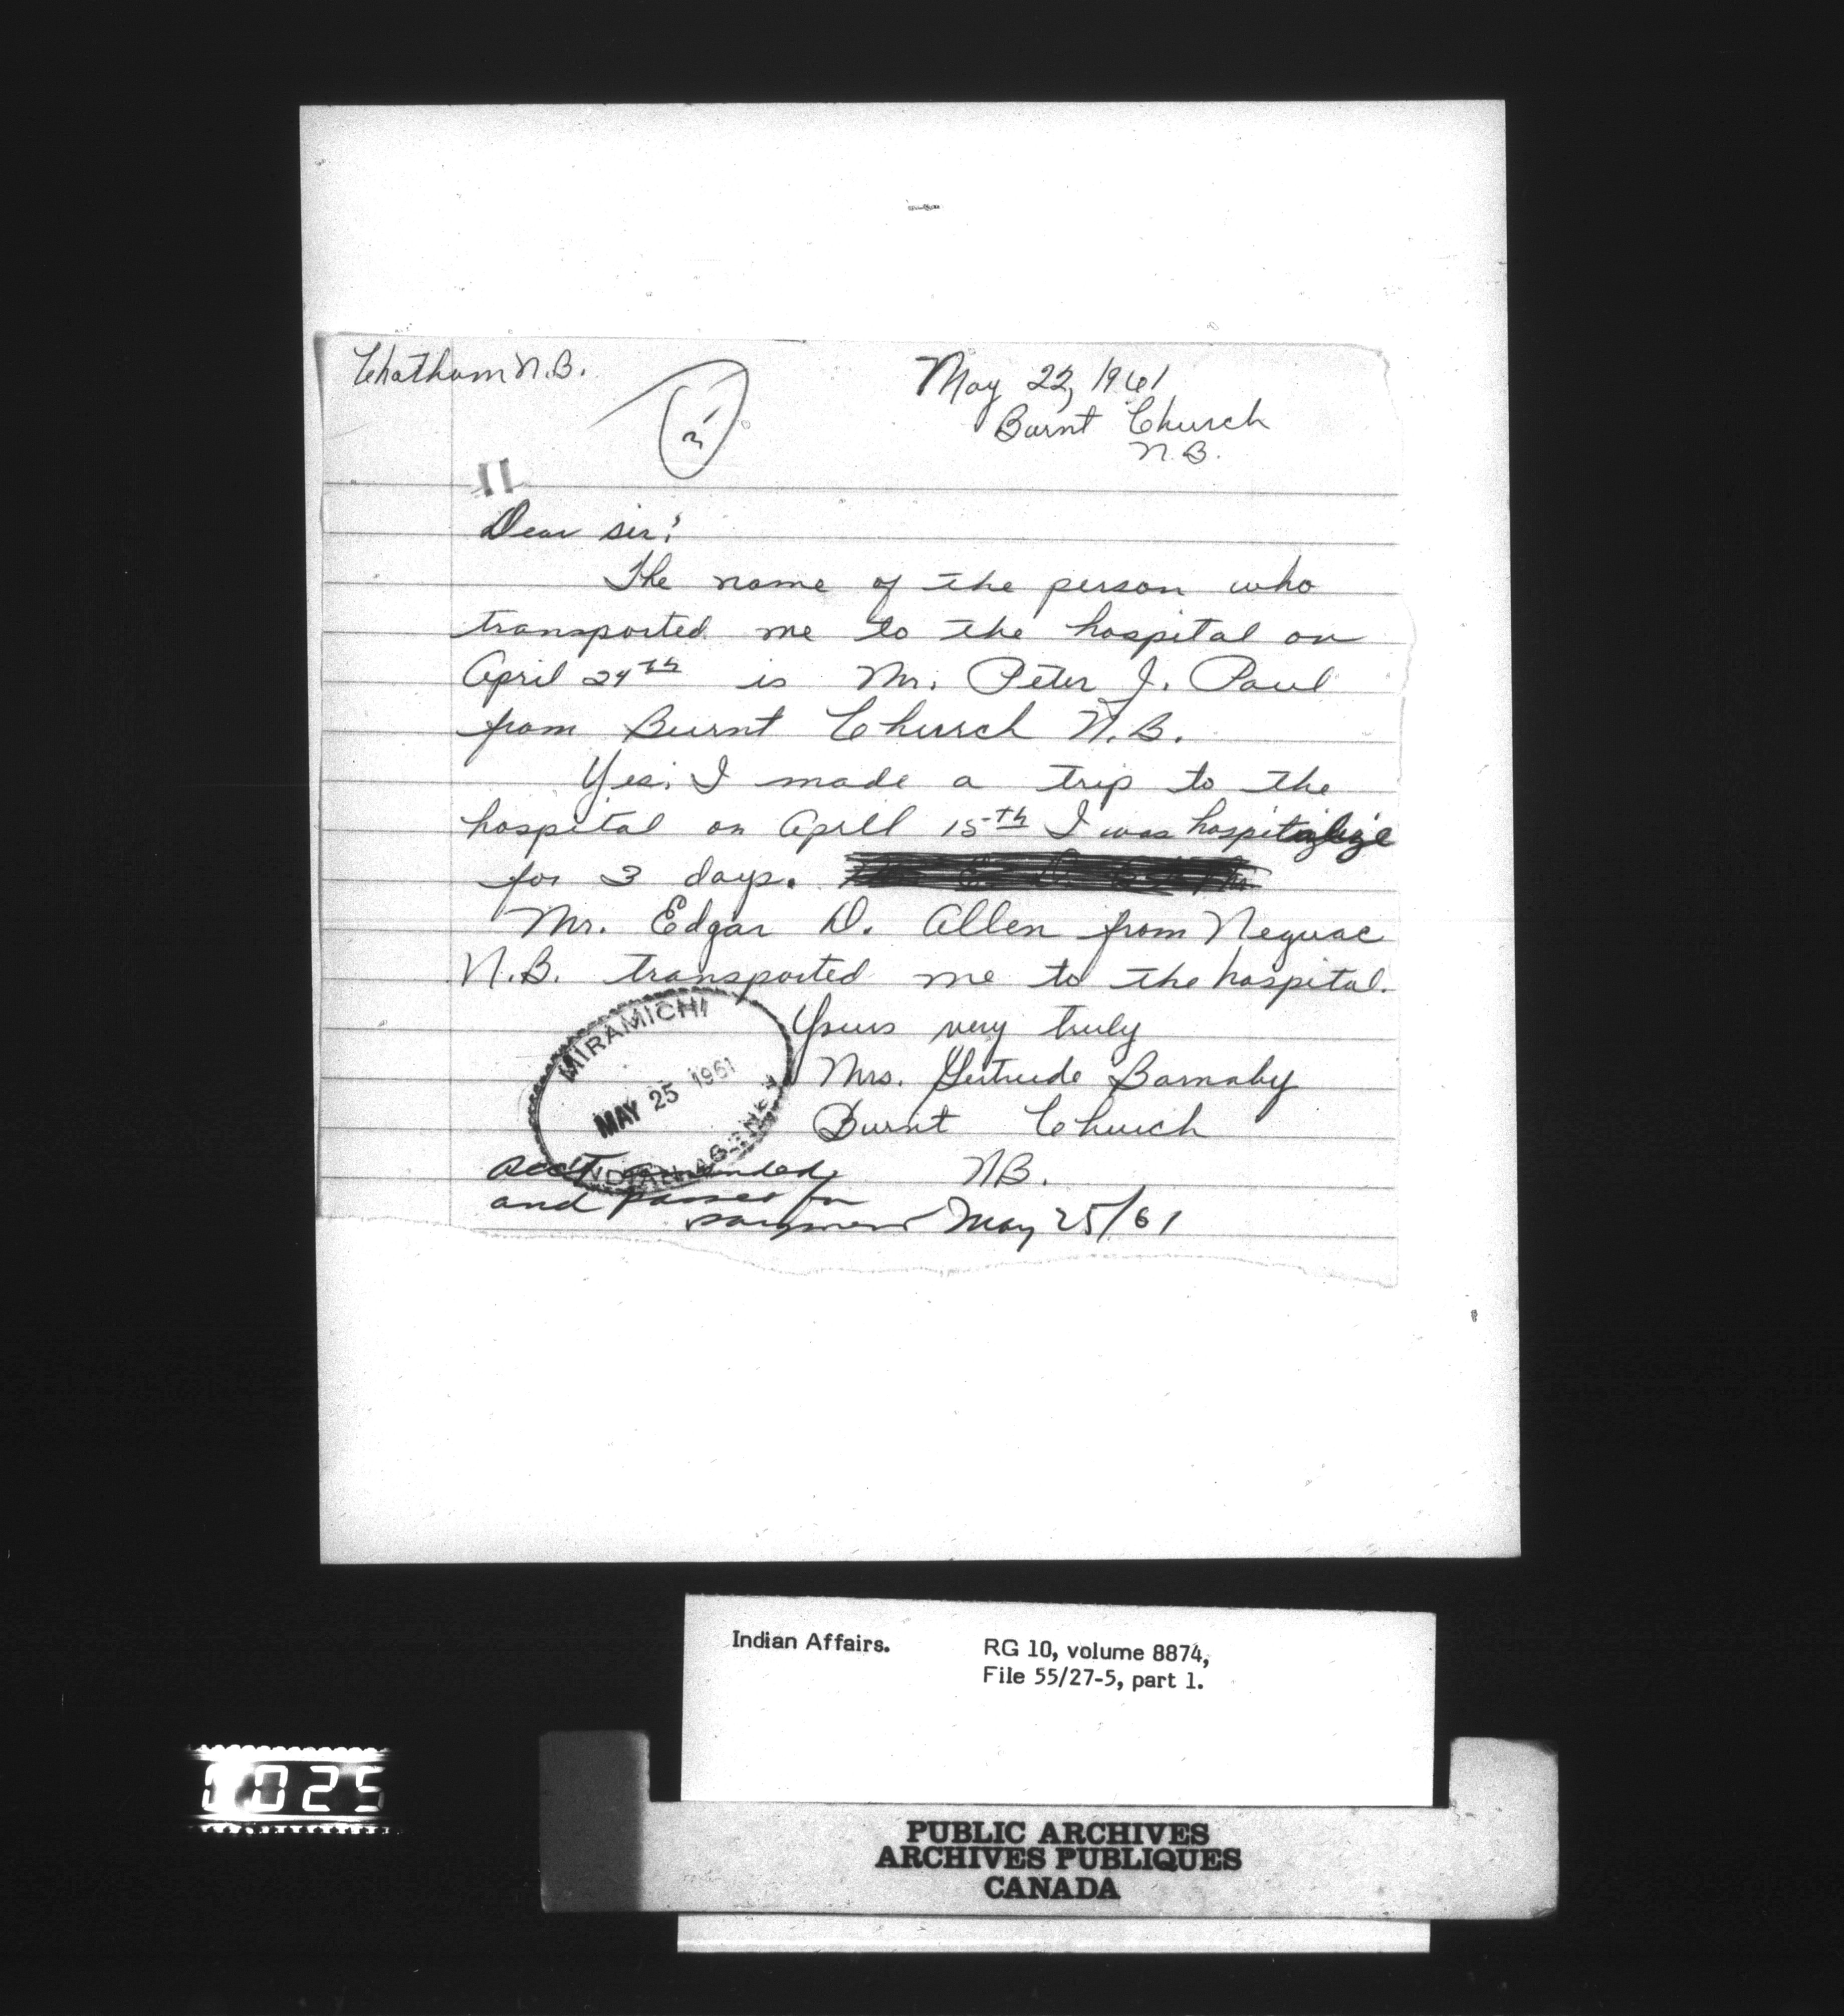 Chatham N.B.
May 22, 1961
Burnt Church
N.B.
3
11
Dear sir:
The name of the person who
transported me to the hospital on
April 24th is Mr. Peter J. Paul
from Burnt Church N.B.
Yes, I made a trip to the
hospital on Aprill 15th I was hospitalize
for 3 days.
Mr. Edgar D. Allen from Neguac
N.B. transported me to the hospital.
Yours very truly
Mrs. Gertrude Barnaby
Burnt Church
NB.
MIRAMICHI
MAY 25 1961
INDIAN AGENCY
acct amended
and passed for
payment May 25/61
Indian Affairs. RG 10, volume 8874,
File 55/27-5, part 1.
0025
PUBLIC ARCHIVES
ARCHIVES PUBLIQUES
CANADA